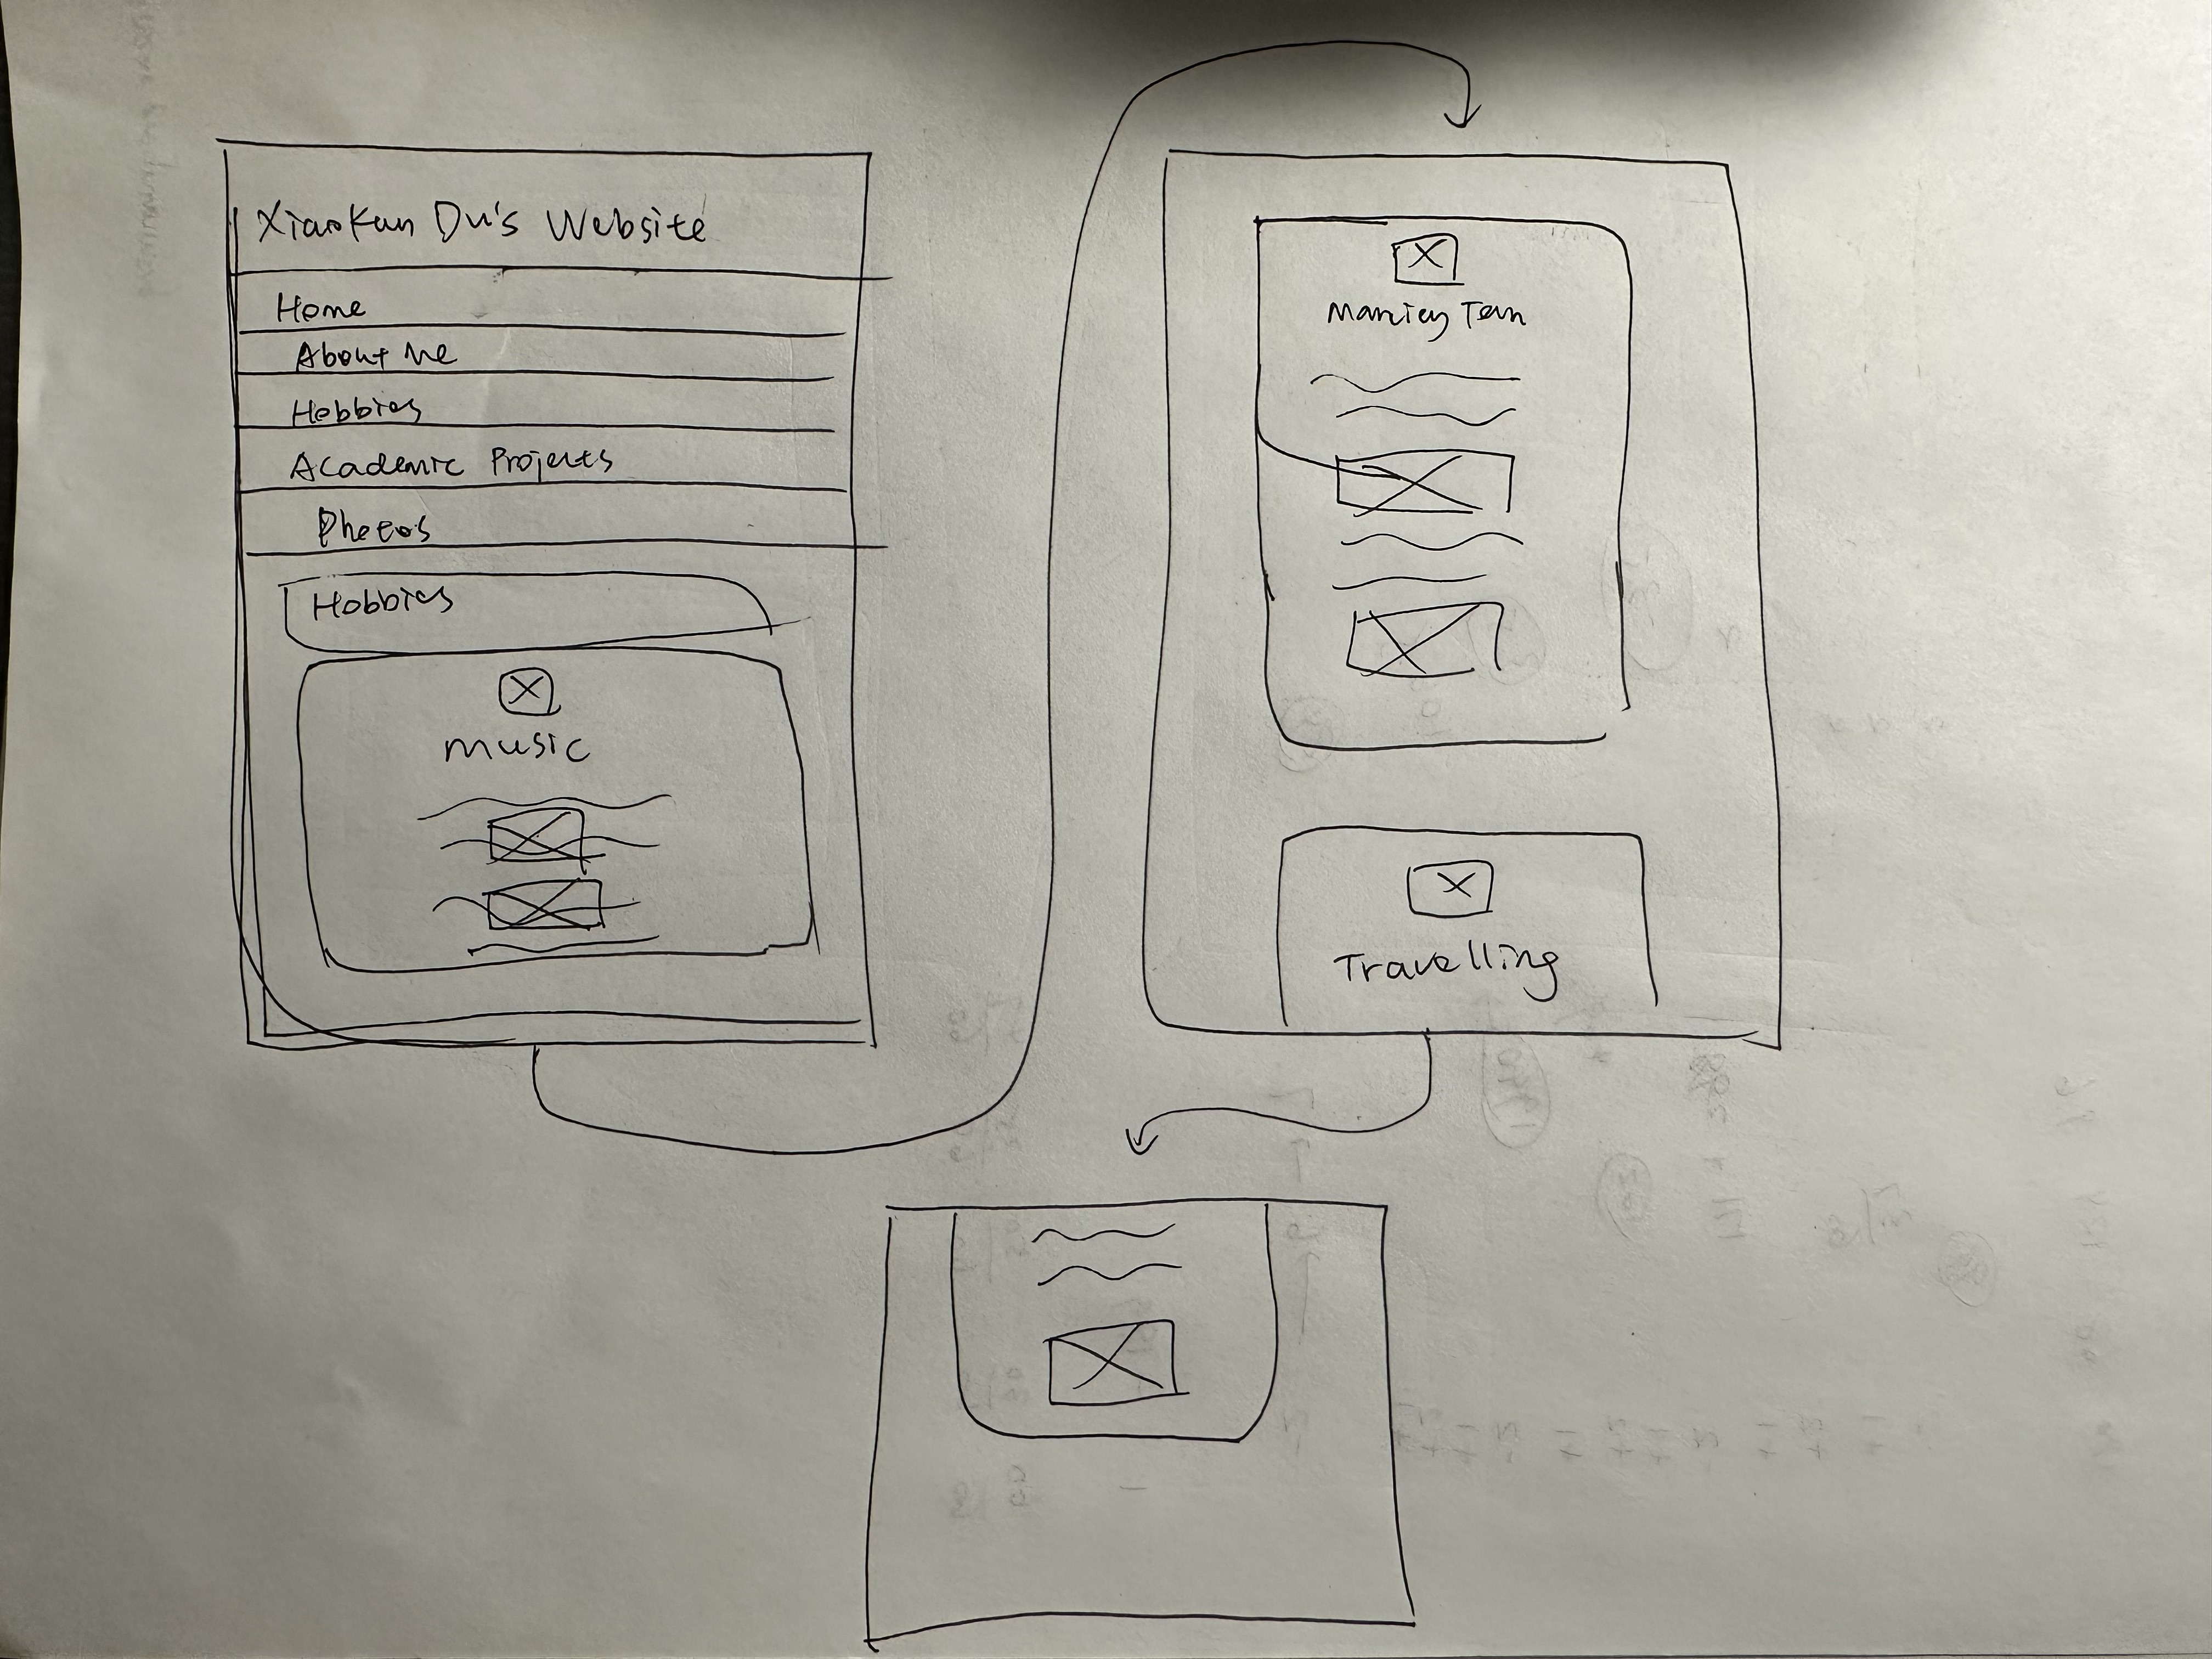 Xiaokun Du's Website
Home
About Me
Hobbies
Academic Projects
Photos
Hobbies
music
Travelling